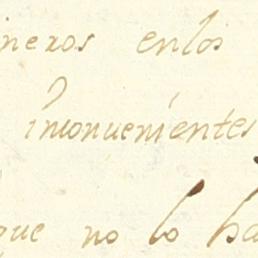 ineros enlos
inconuenientes
que no lo ha